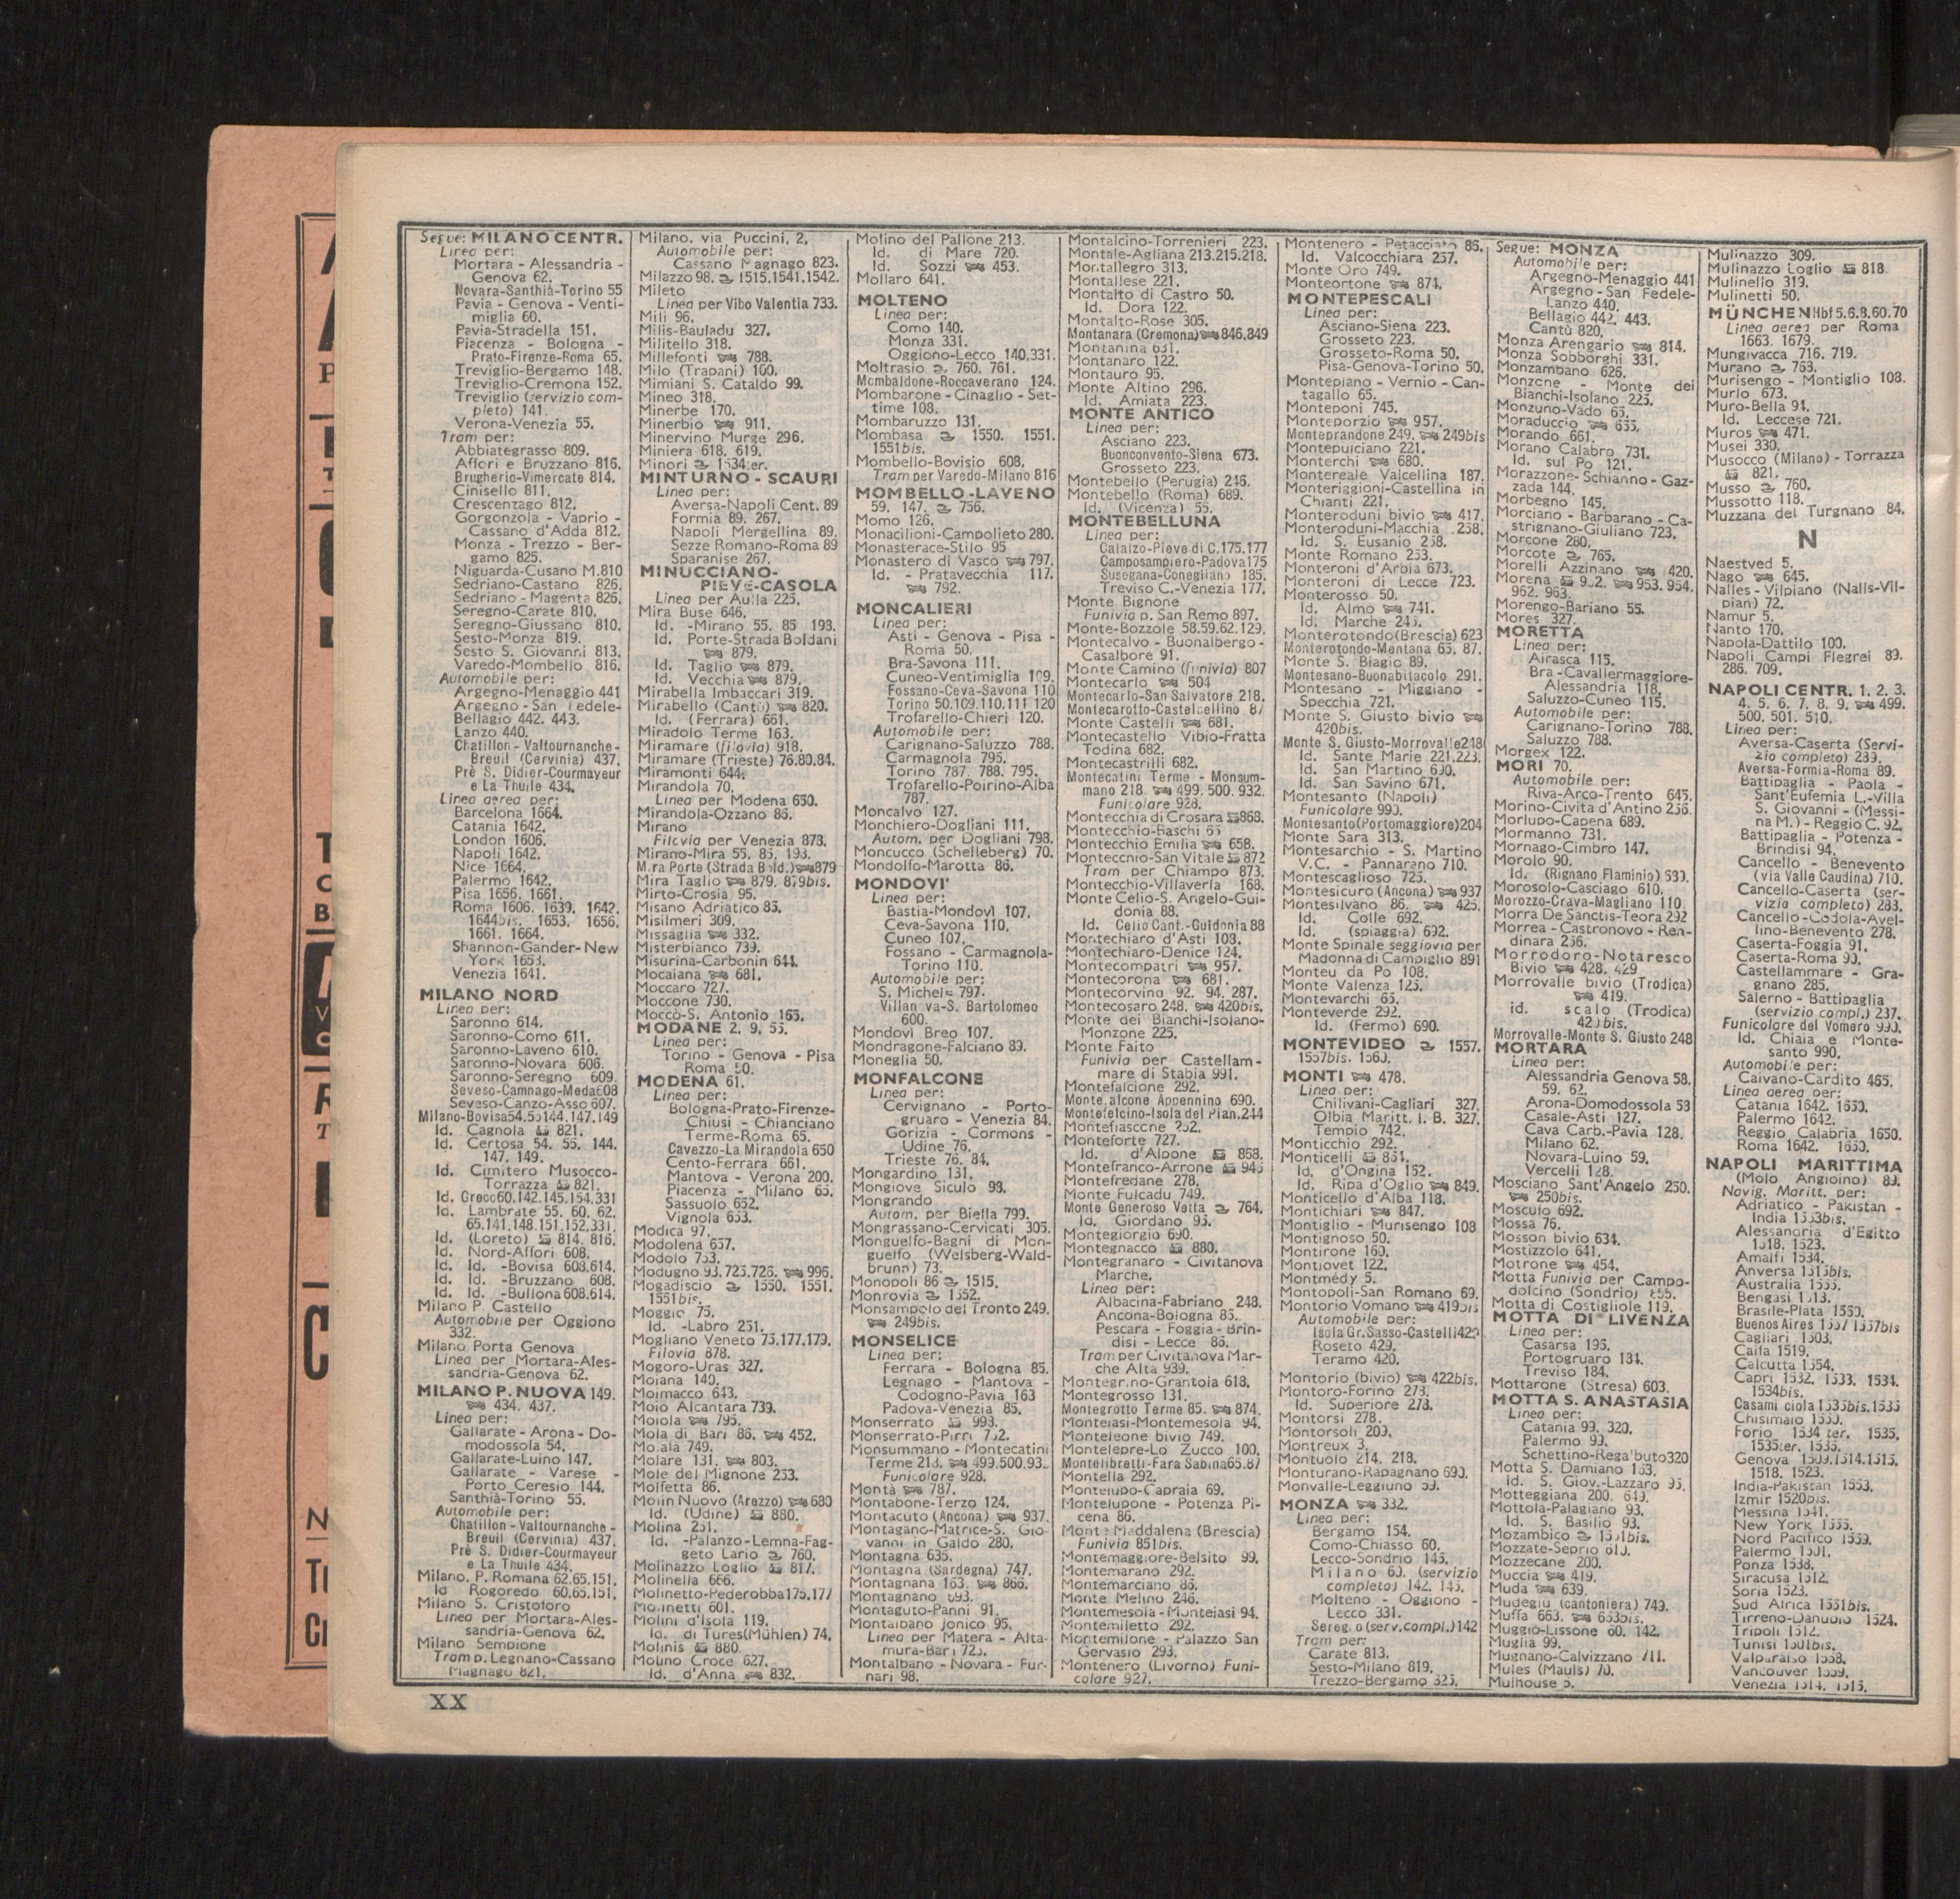 Segue: MILANO CENTR.
Linea per:
Mortara - Alessandria -
Genova 62.
Novara-Santhià-Torino 55
Pavia - Genova - Venti-
miglia 60.
Pavia-Stradella 151.
Piacenza - Bologna -
Prato-Firenze-Roma 65.
Treviglio-Bergamo 148.
Treviglio-Cremona 152.
Treviglio (servizio com-
pleto) 141.
Verona-Venezia 55.
Tram per:
Abbiategrasso 809.
Affori e Bruzzano 816.
Brugherio-Vimercate 814.
Cinisello 811.
Crescenzago 812.
Gorgonzola - Vaprio -
Cassano d'Adda 812.
Monza - Trezzo - Ber-
gamo 825.
Niguarda-Cusano M.810
Sedriano-Castano 826.
Sedriano - Magenta 826.
Seregno-Carate 810.
Seregno-Giussano 810.
Sesto-Monza 819.
Sesto S. Giovanni 813.
Varedo-Mombello 816.
Automobile per:
Argegno-Menaggio 441
Argegno-San Fedele-
Bellagio 442. 443.
Lanzo 440.
Chatillon - Valtournanche -
Breuil (Cervinia) 437.
Prè S. Didier-Courmayeur
e La Thuile 434.
Linea aerea per:
Barcelona 1664.
Catania 1642.
London 1606.
Napoli 1642.
Nice 1664.
Palermo 1642.
Pisa 1656. 1661.
Roma 1606. 1639. 1642.
1644bis. 1653. 1656.
1661. 1664.
Shannon-Gander-New
York 1653.
Venezia 1641.
MILANO NORD
Linea per:
Saronno 614.
Saronno-Como 611.
Saronno-Laveno 610.
Saronno-Novara 606.
Saronno-Seregno 609.
Seveso-Camnago-Meda608
Seveso-Canzo-Asso 607.
Milano-Bovisa54.55144.147.149
Id. Cagnola 821.
Id. Certosa 54. 55. 144.
147. 149.
Id. Cimitero Musocco-
Torrazza 821.
Id. Greco60.142.145.154.331
Id. Lambrate 55. 60. 62.
65.141.148.151.152.331.
Id. (Loreto) 814. 816.
Id. Nord-Affori 608.
Id. Id. -Bovisa 608.614.
Id. Id. -Bruzzano 608.
Id. Id. -Bullona 608.614.
Milano P. Castello
Automobile per Oggiono
332.
Milano Porta Genova
Linea per Mortara-Ales-
sandria-Genova 62.
MILANO P. NUOVA 149.
434. 437.
Linea per:
Gallarate - Arona - Do-
modossola 54.
Gallarate-Luino 147.
Gallarate - Varese -
Porto Ceresio 144.
Santhià-Torino 55.
Automobile per:
Chatillon - Valtournanche -
Breuil (Cervinia) 437.
Prè S. Didier-Courmayeur
e La Thuile 434.
Milano, P. Romana 62.65.151.
Id Rogoredo 60.65.151.
Milano S. Cristoforo
Linea per Mortara-Ales-
sandria-Genova 62.
Milano Sempione
Tram p. Legnano-Cassano
Magnago 821.
Milano, via Puccini, 2,
Automobile per:
Cassano Magnago 823.
Milazzo 98. 1515.1541.1542.
Mileto
Linea per Vibo Valentia 733.
Mili 96.
Milis-Bauladu 327.
Militello 318.
Millefonti 788.
Milo (Trapani) 100.
Mimiani S. Cataldo 99.
Mineo 318.
Minerbe 170.
Minerbio 911.
Minervino Murge 296.
Miniera 618. 619.
Minori 1534ter.
MINTURNO - SCAURI
Linea per:
Aversa-Napoli Cent. 89
Formia 89. 267.
Napoli Mergellina 89.
Sezze Romano-Roma 89
Sparanise 267.
MINUCCIANO-
PIEVE-CASOLA
Linea per Aulla 225.
Mira Buse 646.
Id. -Mirano 55. 85 193.
Id. Porte-Strada Boldani
879.
Id. Taglio 879.
Id. Vecchia 879.
Mirabella Imbaccari 319.
Mirabello (Cantù) 820.
Id. (Ferrara) 661.
Miradolo Terme 163.
Miramare (filovia) 918.
Miramare (Trieste) 76.80.84.
Miramonti 644.
Mirandola 70.
Linea per Modena 650.
Mirandola-Ozzano 86.
Mirano
Filovia per Venezia 878.
Mirano-Mira 55. 85. 193.
Mira Porte (Strada Bold.) 879
Mira Taglio 879. 879bis.
Mirto-Crosia 95.
Misano Adriatico 85.
Misilmeri 309.
Missaglia 332.
Misterbianco 739.
Misurina-Carbonin 644.
Mocaiana 681.
Moccaro 727.
Moccone 730.
Moccò-S. Antonio 165.
MODANE 2. 9. 55.
Linea per:
Torino - Genova - Pisa
Roma 50.
MODENA 61.
Linea per:
Bologna-Prato-Firenze-
Chiusi - Chianciano
Terme-Roma 65.
Cavezzo-La Mirandola 650
Cento-Ferrara 661.
Mantova - Verona 200.
Piacenza - Milano 65.
Sassuolo 652.
Vignola 653.
Modica 97.
Modolena 657.
Modolo 753.
Modugno 93.725.726. 996.
Mogadiscio 1550. 1551.
1551bis.
Moggio 75.
Id. -Labro 251.
Mogliano Veneto 75.177.179.
Filovia 878.
Mogoro-Uras 327.
Moiana 140.
Moimacco 643.
Moio Alcantara 739.
Moiola 795.
Mola di Bari 86. 452.
Molalà 749.
Molare 131. 803.
Mole del Mignone 253.
Molfetta 86.
Molin Nuovo (Arezzo) 680
Id. (Udine) 880.
Molina 251.
Id. -Palanzo-Lemna-Fag-
geto Lario 760.
Molinazzo Loglio 817.
Molinella 666.
Molinetto-Pederobba175.177
Molinetti 601.
Molini d'Isola 119.
Id. di Tures(Mühlen) 74.
Molinis 880.
Molino Croce 627.
Id. d'Anna 832.
Molino del Pallone 213.
Id. di Mare 720.
Id. Sozzi 453.
Mollaro 641.
MOLTENO
Linea per:
Como 140.
Monza 331.
Oggiono-Lecco 140.331.
Moltrasio 760. 761.
Mombaldone-Roccaverano 124.
Mombarone - Cinaglio - Set-
time 108.
Mombaruzzo 131.
Mombasa 1550. 1551.
1551bis.
Mombello-Bovisio 608.
Tram per Varedo-Milano 816
MOMBELLO-LAVENO
59. 147. 756.
Momo 126.
Monacilioni-Campolieto 280.
Monasterace-Stilo 95
Monastero di Vasco 797.
Id. - Pratavecchia 117.
792.
MONCALIERI
Linea per:
Asti - Genova - Pisa -
Roma 50.
Bra-Savona 111.
Cuneo-Ventimiglia 109.
Fossano-Ceva-Savona 110
Torino 50.109.110.111 120
Trofarello-Chieri 120.
Automobile per:
Carignano-Saluzzo 788.
Carmagnola 795.
Torino 787. 788. 795.
Trofarello-Poirino-Alba
787.
Moncalvo 127.
Monchiero-Dogliani 111.
Autom. per Dogliani 798.
Moncucco (Schelleberg) 70.
Mondolfo-Marotta 86.
MONDOVI'
Linea per:
Bastia-Mondovì 107.
Ceva-Savona 110.
Cuneo 107.
Fossano - Carmagnola-
Torino 110.
Automobile per:
S. Michele 797.
Villanova-S. Bartolomeo
600.
Mondovì Breo 107.
Mondragone-Falciano 89.
Moneglia 50.
MONFALCONE
Linea per:
Cervignano - Porto-
gruaro - Venezia 84.
Gorizia - Cormons -
Udine 76.
Trieste 76. 84.
Mongardino 131.
Mongiove Siculo 98.
Mongrando
Autom. per Biella 799.
Mongrassano-Cervicati 305.
Monguelfo-Bagni di Mon-
guelfo (Welsberg-Wald-
brunn) 73.
Monopoli 86 1515.
Monrovia 1552.
Monsampolo del Tronto 249.
249bis.
MONSELICE
Linea per:
Ferrara - Bologna 85.
Legnago - Mantova -
Codogno-Pavia 163
Padova-Venezia 85.
Monserrato 993.
Monserrato-Pirri 752.
Monsummano - Montecatini
Terme 218. 499.500.93
Funicolare 928.
Montà 787.
Montabone-Terzo 124.
Montacuto (Ancona) 937.
Montagano-Matrice-S. Gio-
vanni in Galdo 280.
Montagna 635.
Montagna (Sardegna) 747.
Montagnana 163. 866.
Montagnano 693.
Montaguto-Panni 91.
Montalbano Jonico 95.
Linea per Matera - Alta-
mura-Bari 725.
Montalbano - Novara - Fur-
nari 98.
Montalcino-Torrenieri 223.
Montale-Agliana 213.215.218.
Montallegro 313.
Montallese 221.
Montalto di Castro 50.
Id. Dora 122.
Montalto-Rose 305.
Montanara (Cremona) 846.849
Montanina 631.
Montanaro 122.
Montauro 95.
Monte Altino 296.
Id. Amiata 223.
MONTE ANTICO
Linea per:
Asciano 223.
Buonconvento-Siena 673.
Grosseto 223.
Montebello (Perugia) 246.
Montebello (Roma) 689.
Id. (Vicenza) 55.
MONTEBELLUNA
Linea per:
Calalzo-Pieve di C.175.177
Camposampiero-Padova175
Susegana-Conegliano 185.
Treviso C.-Venezia 177.
Monte Bignone
Funivia p. San Remo 897.
Monte-Bozzole 58.59.62.129.
Montecalvo - Buonalbergo -
Casalbore 91.
Monte Camino (funivia) 807
Montecarlo 504
Montecarlo-San Salvatore 218.
Montecarotto-Castelbellino 87
Monte Castelli 681.
Montecastello Vibio-Fratta
Todina 682.
Montecastrilli 682.
Montecatini Terme - Monsum-
mano 218. 499. 500. 932.
Funicolare 928.
Montecchia di Crosara 868.
Montecchio-Raschi 65
Montecchio Emilia 658.
Montecchio-San Vitale 872
Tram per Chiampo 873.
Montecchio-Villaverla 168.
Monte Celio-S. Angelo-Gui-
donia 88.
Id. Celio Cant.-Guidonia 88
Montechiaro d'Asti 108.
Montechiaro-Denice 124.
Montecompatri 957.
Montecorona 681.
Montecorvino 92. 94. 287.
Montecosaro 248. 420bis.
Monte dei Bianchi-Isolano-
Monzone 225.
Monte Faito
Funivia per Castellam-
mare di Stabia 991.
Montefalcione 292.
Montefalcone Appennino 690.
Montefelcino-Isola del Pian.244
Montefiascone 252.
Monteforte 727.
Id. d'Alpone 868.
Montefranco-Arrone 946
Montefredane 278.
Monte Fulcadu 749.
Monte Generoso Vetta 764.
Id. Giordano 95.
Montegiorgio 690.
Montegnacco 880.
Montegranaro - Civitanova
Marche.
Linea per:
Albacina-Fabriano 248.
Ancona-Bologna 85.
Pescara - Foggia - Brin-
disi - Lecce 86.
Tram per Civitanova Mar-
che Alta 939.
Montegrino-Grantola 618.
Montegrosso 131.
Montegrotto Terme 85. 874.
Monteiasi-Montemesola 94.
Monteleone bivio 749.
Montelepre-Lo Zucco 100.
Montelibretti-Fara Sabina65.87
Montella 292.
Montelupo-Capraia 69.
Montelupone - Potenza Pi-
cena 86.
Monte Maddalena (Brescia)
Funivia 851bis.
Montemaggiore-Belsito 99.
Montemarano 292.
Montemarciano 85.
Monte Melino 246.
Montemesola - Monteiasi 94.
Montemiletto 292.
Montemilone - Palazzo San
Gervasio 293.
Montenero (Livorno) Funi-
colare 927.
Montenero - Petacciato 86.
Id. Valcocchiara 257.
Monte Oro 749.
Monteortone 874.
MONTEPESCALI
Linea per:
Asciano-Siena 223.
Grosseto 223.
Grosseto-Roma 50.
Pisa-Genova-Torino 50.
Montepiano - Vernio - Can-
tagallo 65.
Monteponi 745.
Monteporzio 957.
Monteprandone 249. 249bis
Montepulciano 221.
Monterchi 680.
Montereale Valcellina 187.
Monteriggioni-Castellina in
Chianti 221.
Monteroduni bivio 417.
Monteroduni-Macchia 258.
Id. S. Eusanio 258.
Monte Romano 253.
Monteroni d'Arbia 673.
Monteroni di Lecce 723.
Monterosso 50.
Id. Almo 741.
Id. Marche 245.
Monterotondo(Brescia) 623
Monterotondo-Mentana 65. 87.
Monte S. Biagio 89.
Montesano-Buonabitacolo 291.
Montesano - Miggiano -
Specchia 721.
Monte S. Giusto bivio
420bis.
Monte S. Giusto-Morrovalle248
Id. Sante Marie 221.223.
Id. San Martino 690.
Id. San Savino 671.
Montesanto (Napoli)
Funicolare 990.
Montesanto(Portomaggiore)204
Monte Sara 313.
Montesarchio - S. Martino
V.C. - Pannarano 710.
Montescaglioso 725.
Montesicuro (Ancona) 937
Montesilvano 86. 425.
Id. Colle 692.
Id. (spiaggia) 692.
Monte Spinale seggiovia per
Madonna di Campiglio 891
Monteu da Po 108.
Monte Valenza 125.
Montevarchi 65.
Monteverde 292.
Id. (Fermo) 690.
MONTEVIDEO 1557.
1557bis. 1560.
MONTI 478.
Linea per:
Chilivani-Cagliari 327.
Olbia Maritt. I. B. 327.
Tempio 742.
Monticchio 292.
Monticelli 851.
Id. d'Ongina 152.
Id. Ripa d'Oglio 849.
Monticello d'Alba 118.
Montichiari 847.
Montiglio - Murisengo 108
Montignoso 50.
Montirone 160.
Montjovet 122.
Montmédy 5.
Montopoli-San Romano 69.
Montorio Vomano 419bis
Automobile per:
Isola Gr.Sasso-Castelli422
Roseto 429.
Teramo 420.
Montorio (bivio) 422bis.
Montoro-Forino 278.
Id. Superiore 278.
Montorsi 278.
Montorsoli 209.
Montreux 3.
Montuolo 214. 218.
Monturano-Rapagnano 690.
Monvalle-Leggiuno 59.
MONZA 332.
Linea per:
Bergamo 154.
Como-Chiasso 60.
Lecco-Sondrio 145.
Milano 60. (servizio
completo) 142. 145.
Molteno - Oggiono -
Lecco 331.
Seregno(serv.compl.)142
Tram per:
Carate 813.
Sesto-Milano 819.
Trezzo-Bergamo 825.
Segue: MONZA
Automobile per:
Argegno-Menaggio 441
Argegno-San Fedele-
Lanzo 440.
Bellagio 442. 443.
Cantù 820.
Monza Arengario 814.
Monza Sobborghi 331.
Monzambano 626.
Monzone - Monte dei
Bianchi-Isolano 225.
Monzuno-Vado 65.
Moraduccio 655.
Morando 661.
Morano Calabro 731.
Id. sul Po 121.
Morazzone-Schianno - Gaz-
zada 144.
Morbegno 145.
Morciano - Barbarano - Ca-
strignano-Giuliano 723.
Morcone 280.
Morcote 765.
Morelli Azzinano 420.
Morena 952. 953. 954.
962. 963.
Morengo-Bariano 55.
Mores 327.
MORETTA
Linea per:
Airasca 115.
Bra - Cavallermaggiore-
Alessandria 118.
Saluzzo-Cuneo 115.
Automobile per:
Carignano-Torino 788.
Saluzzo 788.
Morgex 122.
MORI 70.
Automobile per:
Riva-Arco-Trento 645.
Morino-Civita d'Antino 256.
Morlupo-Capena 689.
Mormanno 731.
Mornago-Cimbro 147.
Morolo 90.
Id. (Rignano Flaminio) 689.
Morosolo-Casciago 610.
Morozzo-Crava-Magliano 110.
Morra De Sanctis-Teora 292
Morrea - Castronovo - Ren-
dinara 256.
Morrodoro-Notaresco
Bivio 428. 429
Morrovalle bivio (Trodica)
419.
id. scalo (Trodica)
420bis.
Morrovalle-Monte S. Giusto 248
MORTARA
Linea per:
Alessandria Genova 58.
59. 62.
Arona-Domodossola 58
Casale-Asti 127.
Cava Carb.-Pavia 128.
Milano 62.
Novara-Luino 59.
Vercelli 128.
Mosciano Sant'Angelo 250.
250bis.
Mosculo 692.
Mossa 76.
Mosson bivio 634.
Mostizzolo 641.
Motrone 454.
Motta Funivia per Campo-
dolcino (Sondrio) 855.
Motta di Costigliole 119.
MOTTA DI LIVENZA
Linea per:
Casarsa 195.
Portogruaro 184.
Treviso 184.
Mottarone (Stresa) 603.
MOTTA S. ANASTASIA
Linea per:
Catania 99. 320.
Palermo 99.
Schettino-Regalbuto320
Motta S. Damiano 163.
Id. S. Giov.-Lazzaro 95.
Motteggiana 200. 649.
Mottola-Palagiano 93.
Id. S. Basilio 93.
Mozambico 1551bis.
Mozzate-Seprio 610.
Mozzecane 200.
Muccia 419.
Muda 639.
Mudegiu (cantoniera) 749.
Muffa 663. 653bis.
Muggiò-Lissone 60. 142.
Muglia 99.
Mugnano-Calvizzano 711.
Mules (Mauls) 70.
Mulhouse 5.
Mulinazzo 309.
Mulinazzo Loglio 818.
Mulinello 319.
Mulinetti 50.
MÜNCHEN Hbf 5.6.8.60.70
Linea aerea per Roma
1663. 1679.
Mungivacca 716. 719.
Murano 768.
Murisengo - Montiglio 108.
Murlo 673.
Muro-Bella 94.
Id. Leccese 721.
Muros 471.
Musei 330.
Musocco (Milano) - Torrazza
821.
Musso 760.
Mussotto 118.
Muzzana del Turgnano 84.
N
Naestved 5.
Nago 645.
Nalles - Vilpiano (Nalls-Vil-
pian) 72.
Namur 5.
Nanto 170.
Napola-Dattilo 100.
Napoli Campi Flegrei 89.
286. 709.
NAPOLI CENTR. 1. 2. 3.
4. 5. 6. 7. 8. 9. 499.
500. 501. 510.
Linea per:
Aversa-Caserta (Servi-
zio completo) 289.
Aversa-Formia-Roma 89.
Battipaglia - Paola -
Sant'Eufemia L.-Villa
S. Giovanni - (Messi-
na M.) - Reggio C. 92.
Battipaglia - Potenza -
Brindisi 94.
Cancello - Benevento
(via Valle Caudina) 710.
Cancello-Caserta (ser-
vizio completo) 283.
Cancello-Codola-Avel-
lino-Benevento 278.
Caserta-Foggia 91.
Caserta-Roma 90.
Castellammare - Gra-
gnano 285.
Salerno - Battipaglia
(servizio compl.) 237.
Funicolare del Vomero 990.
Id. Chiaia e Monte-
santo 990.
Automobile per:
Caivano-Cardito 465.
Linea aerea per:
Catania 1642. 1650.
Palermo 1642.
Reggio Calabria 1650.
Roma 1642. 1650.
NAPOLI MARITTIMA
(Molo Angioino) 89.
Navig. Maritt. per:
Adriatico - Pakistan -
India 1553bis.
Alessandria d'Egitto
1518. 1523.
Amalfi 1534.
Anversa 1515bis.
Australia 1555.
Bengasi 1513.
Brasile-Plata 1550.
Buenos Aires 1557 1557bis
Cagliari 1503.
Caifa 1519.
Calcutta 1554.
Capri 1532. 1533. 1534.
1534bis.
Casamicciola 1535bis.1535
Chisimaio 1550.
Forio 1534 ter. 1535.
1535ter. 1535.
Genova 1509.1514.1515.
1518. 1523.
India-Pakistan 1553.
Izmir 1520bis.
Messina 1541.
New York 1555.
Nord Pacifico 1559.
Palermo 1501.
Ponza 1538.
Siracusa 1512.
Soria 1523.
Sud Africa 1551bis.
Tirreno-Danubio 1524.
Tripoli 1512.
Tunisi 1501bis.
Valparaiso 1558.
Vancouver 1559.
Venezia 1514. 1515.
XX